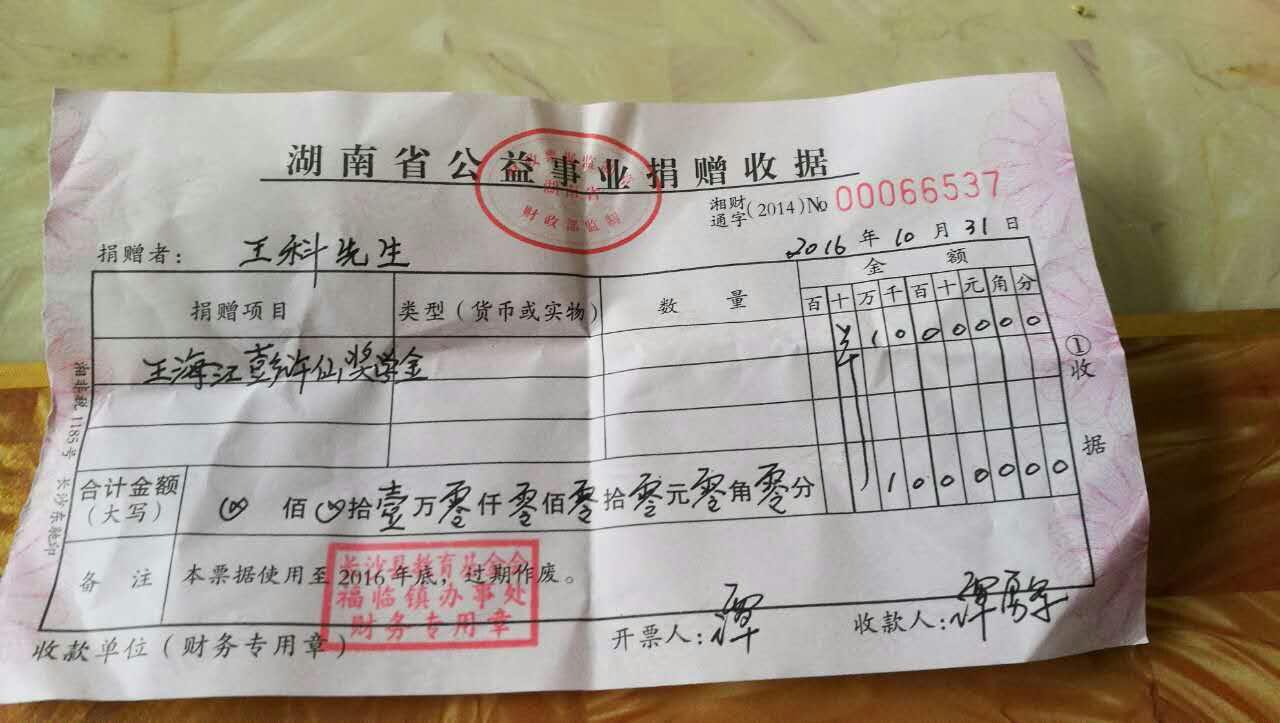 湖南省公益事业捐赠收据
湖南省
财政部监制
湘财通字(2014)№ 00066537
捐赠者: 王科先生
2016 年 10 月 31 日
捐赠项目 类型(货币或实物) 数量 金额
百 十 万 千 百 十 元 角 分
王海江彭许仙奖学金 1 0 0 0 0 0 0
合计金额(大写) 佰 拾 壹 万 零 仟 零 佰 零 拾 零 元 零 角 零 分 1 0 0 0 0 0 0
备注 本票据使用至 2016 年底,过期作废。
长沙县教育基金会
福临镇办事处
财务专用章
收款单位(财务专用章) 开票人: 谭 收款人: 谭
①收据
湘非税 1185 号 长沙东驰印